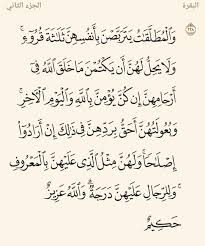 البقرة
الجزء الثاني
وَٱلۡمُطَلَّقَٰتُ يَتَرَبَّصۡنَ بِأَنفُسِهِنَّ ثَلَٰثَةَ قُرُوٓءٖۚ
وَلَا يَحِلُّ لَهُنَّ أَن يَكۡتُمۡنَ مَا خَلَقَ ٱللَّهُ فِيٓ
أَرۡحَامِهِنَّ إِن كُنَّ يُؤۡمِنَّ بِٱللَّهِ وَٱلۡيَوۡمِ ٱلۡأٓخِرِۚ
وَبُعُولَتُهُنَّ أَحَقُّ بِرَدِّهِنَّ فِي ذَٰلِكَ إِنۡ أَرَادُوٓاْ
إِصۡلَٰحٗاۚ وَلَهُنَّ مِثۡلُ ٱلَّذِي عَلَيۡهِنَّ بِٱلۡمَعۡرُوفِۚ
وَلِلرِّجَالِ عَلَيۡهِنَّ دَرَجَةٞۗ وَٱللَّهُ عَزِيزٌ
حَكِيمٌ ٢٢٨